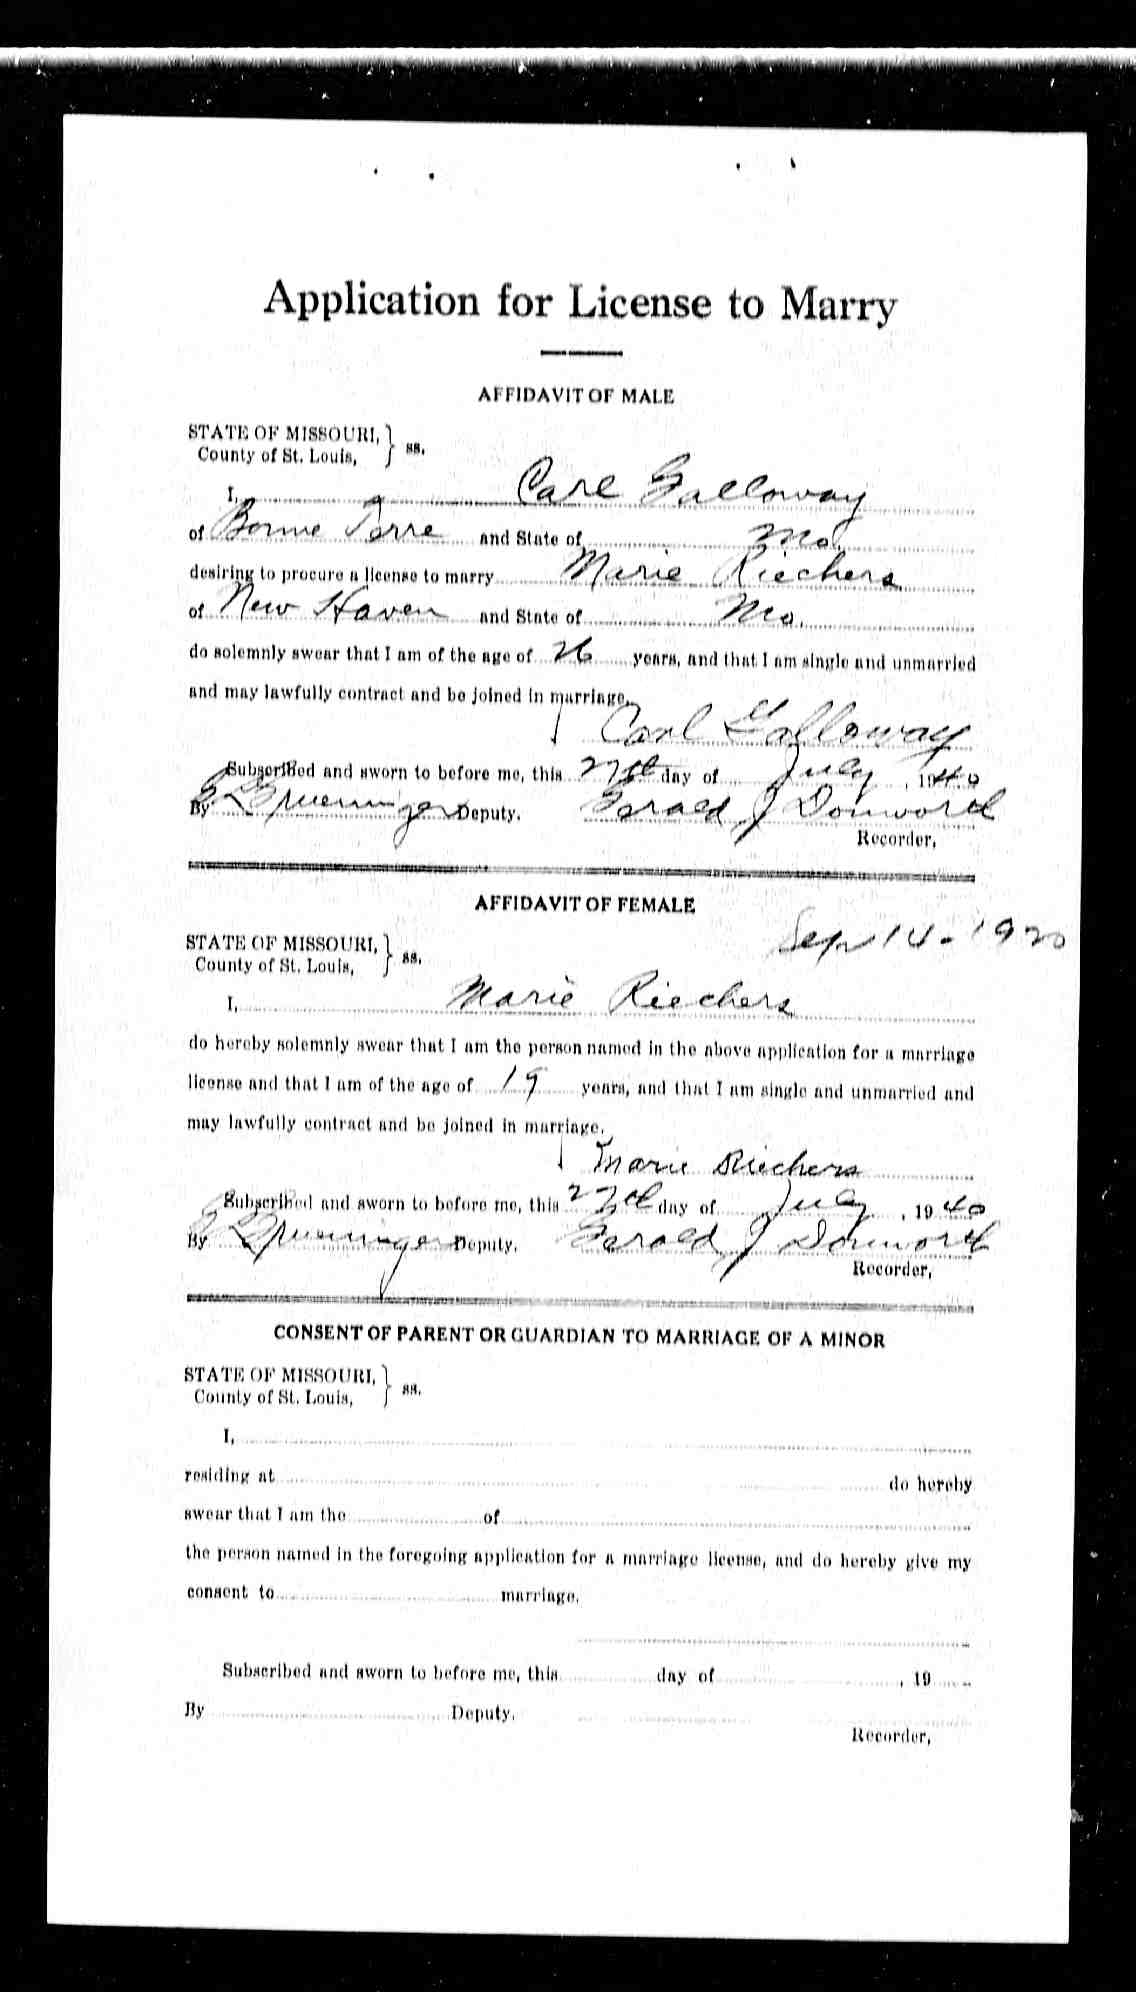 Application for License to Marry
AFFIDAVIT OF MALE
STATE OF MISSOURI, } ss.
County of St. Louis,
I, Carl Galloway
of Bonne Terre and State of Mo.
desiring to procure a license to marry Marie Riechers
of New Haven and State of Mo.
do solemnly swear that I am of the age of 26 years, and that I am single and unmarried
and may lawfully contract and be joined in marriage.
Carl Galloway
Subscribed and sworn to before me, this 27th day of July, 1940
By Grueninger Deputy. Gerald J Donworth
Recorder,
AFFIDAVIT OF FEMALE
Sep 14 - 1920
STATE OF MISSOURI, } ss.
County of St. Louis,
I, Marie Riechers
do hereby solemnly swear that I am the person named in the above application for a marriage
license and that I am of the age of 19 years, and that I am single and unmarried and
may lawfully contract and be joined in marriage.
Marie Riechers
Subscribed and sworn to before me, this 27th day of July, 1940
By Grueninger Deputy. Gerald J Donworth
Recorder,
CONSENT OF PARENT OR GUARDIAN TO MARRIAGE OF A MINOR
STATE OF MISSOURI, } ss.
County of St. Louis,
I,
residing at do hereby
swear that I am the of
the person named in the foregoing application for a marriage license, and do hereby give my
consent to marriage.
Subscribed and sworn to before me, this day of , 19
By Deputy.
Recorder,